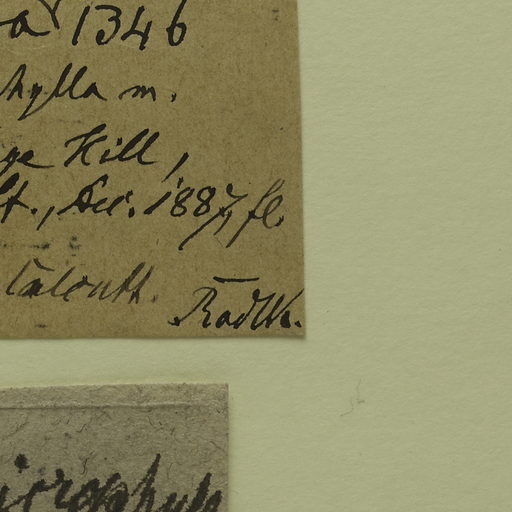 a 1346
hylla m.
ge Hill,
ft., Dec. 1887, fl.
Talcott.
Radlk.
icrophyll